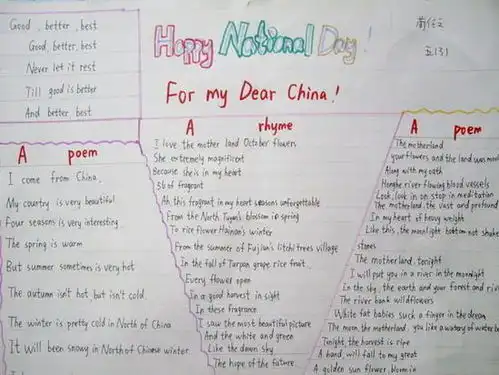 Good, better, best
Good, better, best
Never let it rest
Till good is better
And better, best
Happy National Day!
For my Dear China!
五(3)
A poem
I come from China,
My country is very beautiful
Four seasons is very interesting
The spring is warm
But summer sometimes is very hot
The autumn isn't hot but isn't cold.
The winter is pretty cold in North of China
It will been snowy in North of Chinese winter
A rhyme
I love the mother land October flowers
She extremely magnificent
Because she is in my heart
56 of fragrant
Ah this fragrant in my heart seasons unforgettable
From the North Tuyan's blossom in spring
To rice flower Hainan's winter
From the summer of Fujian's litchi trees village
In the fall of Turpan grape rice fruit
Every flower open
In a good harvest in sight
In these fragrance
I saw the most beautiful picture
And the white and green
Like the dawn sky
The hope of the future
A poem
The motherland
your flowers and the land was mom
Along with my oath
Honghe river flowing blood vessels
Look, look in on stop in meditation
The motherland, the vast and profound
In my heart of heavy weight
Like this, the moonlight bottom not shake
stones
The motherland, tonight
I will put you in a river in the moonlight
In the sky, the earth and your forest and
The river bank wildflowers
White fat babies suck a finger in the dream
The moon, the motherland, you like a watery of water
Tonight, the harvest is ripe
A hand, will fall to my great
A golden sun flower, bloom in